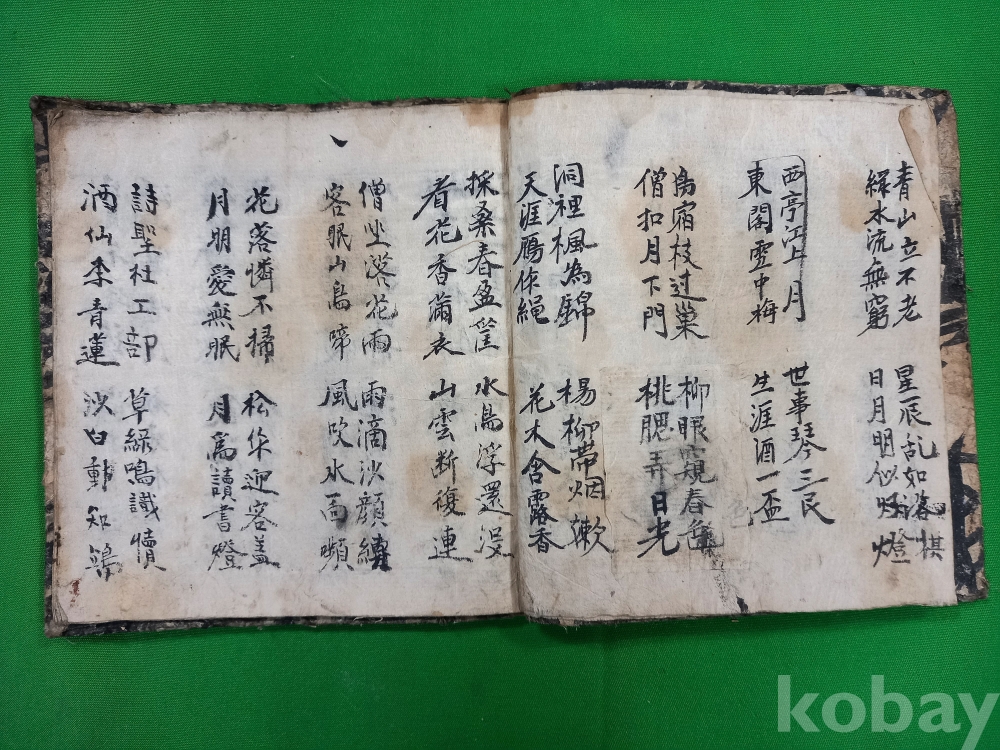 青山立不老
緑水流無窮
星辰乱如棋
日月明似燈
西亭江上月
東閣雪中梅
世事琴三
生涯酒一盃
鳥宿枝过巢
僧扣月下門
柳眼窺春色
桃腮弄日光
洞裡楓為錦
天涯鴈作縄
楊柳帶烟嫰
花木含露香
採桑春盈筐
看花香滿衣
水鳥浮還没
山雲断復連
僧坐落花雨
客眠山鳥啼
雨滴沙顔縝
風吹水面嚬
花落憐不掃
月明愛無眠
松作迎客盖
月為讀書燈
詩聖杜工部
酒仙李青蓮
草緑鳴識犢
沙白動知
kobay